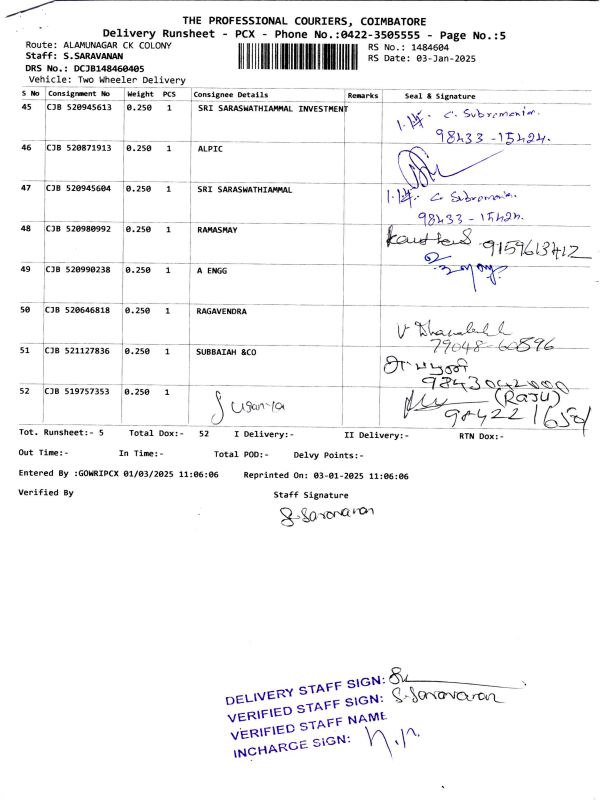 THE PROFESSIONAL COURIERS, COIMBATORE
Delivery Runsheet - PCX - Phone No.:0422-3505555 - Page No.:5
Route: ALAMUNAGAR CK COLONY
RS No.: 1484604
Staff: S.SARAVANAN
RS Date: 03-Jan-2025
DRS No.: DCJB148460405
Vehicle: Two Wheeler Delivery
S No Consignment No Weight PCS Consignee Details Remarks Seal & Signature
45 CJB 520945613 0.250 1 SRI SARASWATHIAMMAL INVESTMENT
C. Subramanian.
98433-15424.
46 CJB 520871913 0.250 1 ALPIC
47 CJB 520945604 0.250 1 SRI SARASWATHIAMMAL
C. Subramanian
98433-15424.
48 CJB 520980992 0.250 1 RAMASMAY
9159613412
49 CJB 520990238 0.250 1 A ENGG
50 CJB 520646818 0.250 1 RAGAVENDRA
79048-60896
51 CJB 521127836 0.250 1 SUBBAIAH &CO
9843042000
52 CJB 519757353 0.250 1 Suganya
(RAJU)
Tot. Runsheet:- 5 Total Dox:- 52 I Delivery:- II Delivery:- RTN Dox:-
Out Time:- In Time:- Total POD:- Delvy Points:-
Entered By :GOWRIPCX 01/03/2025 11:06:06 Reprinted On: 03-01-2025 11:06:06
Verified By Staff Signature
S.Saravanan
DELIVERY STAFF SIGN:
VERIFIED STAFF SIGN: S.Saravanan
VERIFIED STAFF NAME
INCHARGE SIGN: